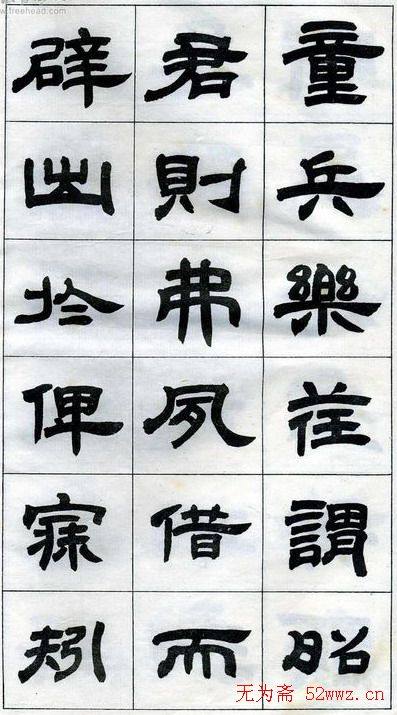 freehead.com
童兵樂謂昭
君則弗夙借而
辟出於俾寐矧
无为斋 52wwz.cn